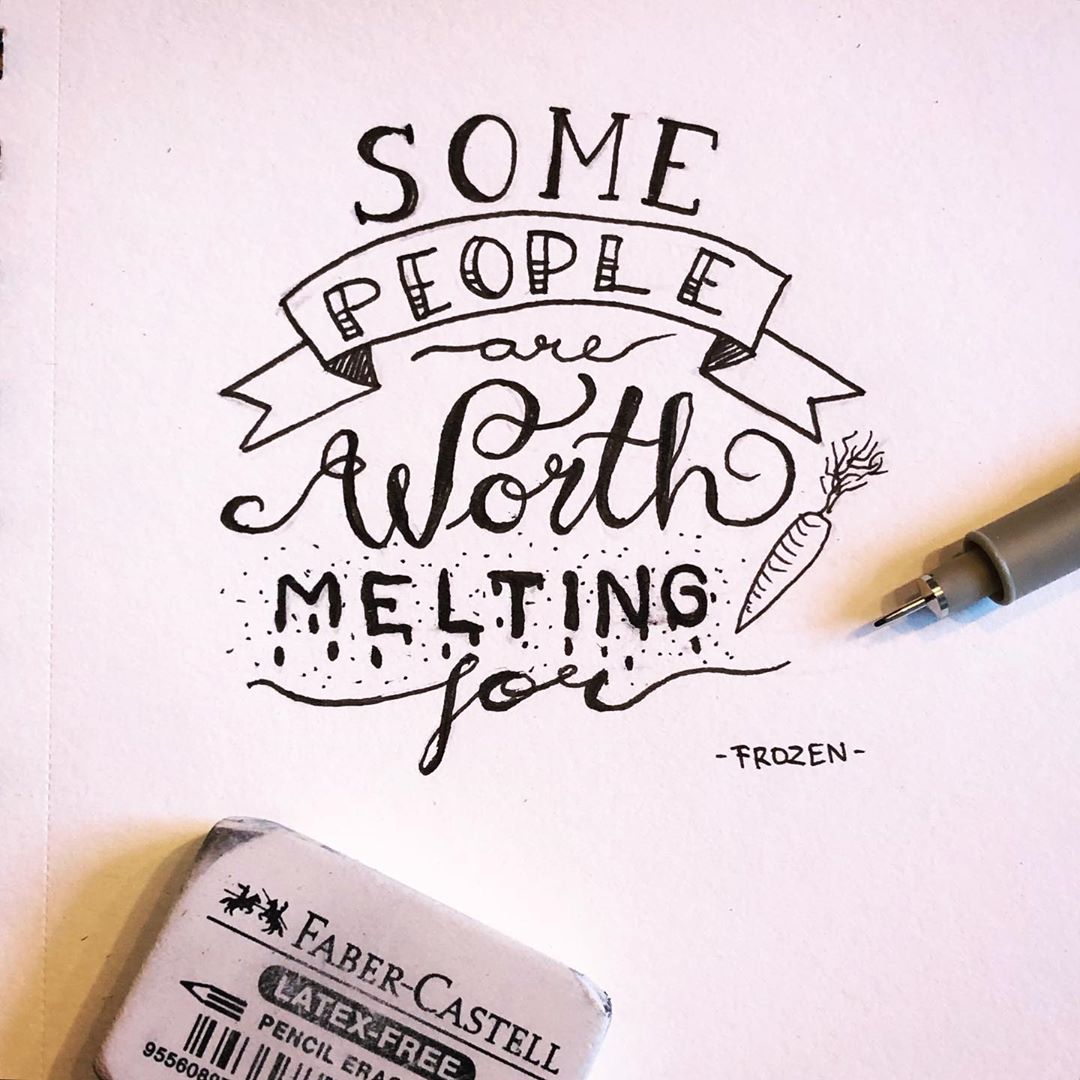 SOME
PEOPLE
are
Worth
MELTING
for
-FROZEN-
FABER-CASTELL
LATEX-FREE
PENCIL